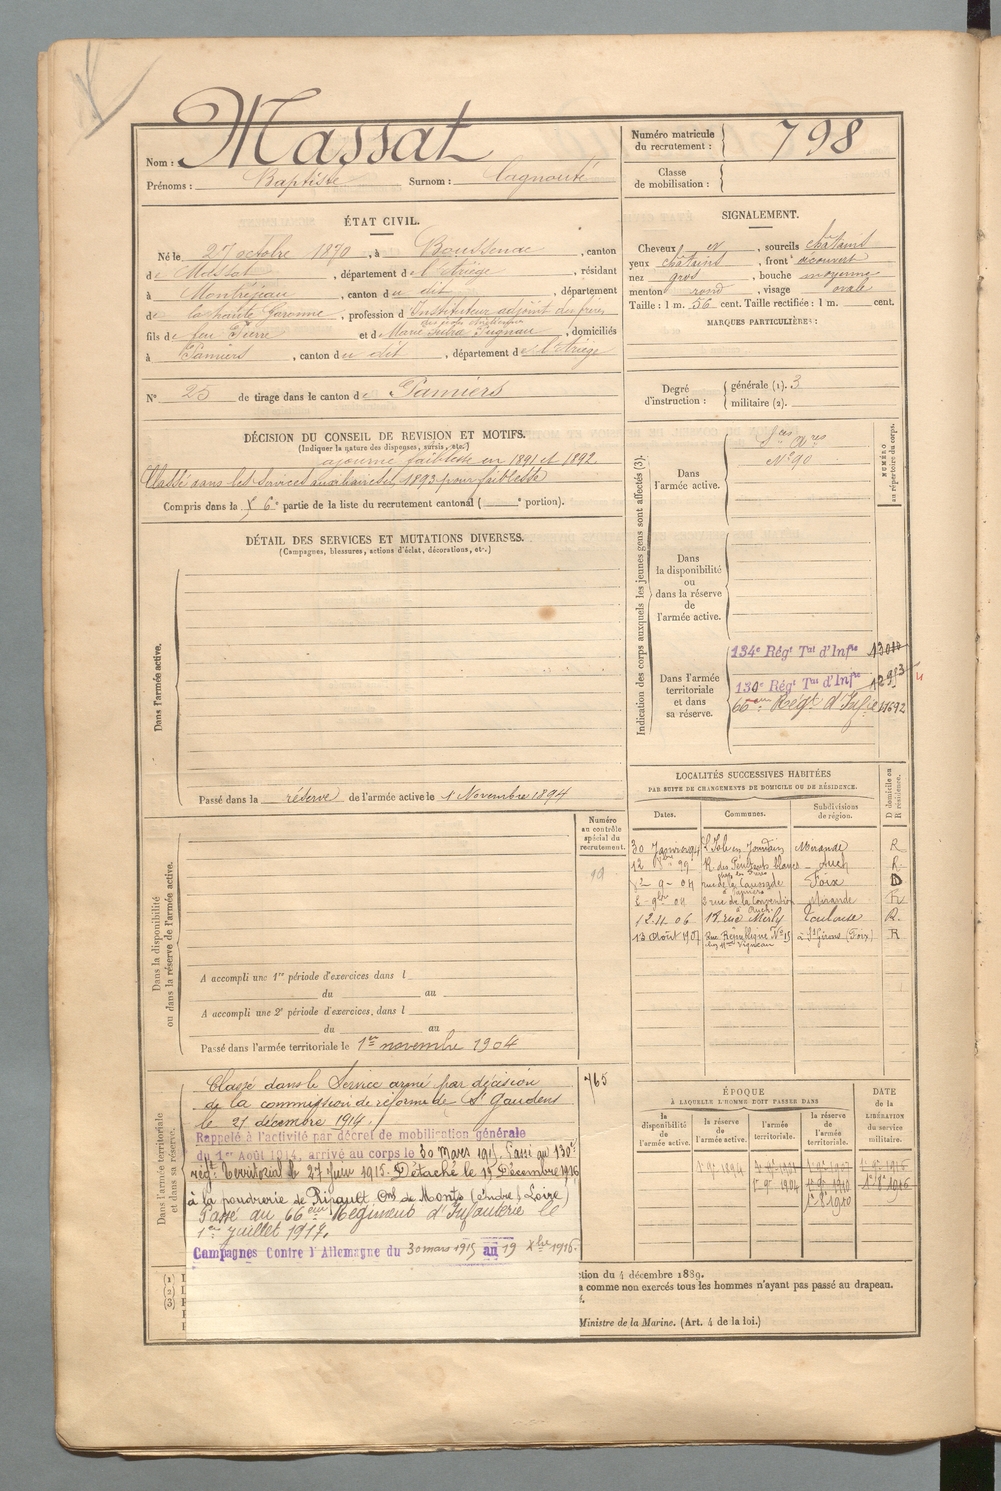 Nom : Massat
Prénoms : Baptiste Surnom : Cagnouté
Numéro matricule du recrutement : 798
Classe de mobilisation :
ÉTAT CIVIL.
Né le 27 octobre 1870, à Boussenac, canton
de Massat, département de l'Ariège, résidant
à Montréjeau, canton du dit département
de la haute Garonne, profession d'Instituteur adjoint des frères
des écoles chrétiennes
fils de feu Pierre et de Marie Pugnau, domiciliés
à Pamiers, canton du dit, département de l'Ariège
N° 25 de tirage dans le canton de Pamiers
SIGNALEMENT.
Cheveux et, sourcils châtains
yeux châtains, front découvert
nez gros, bouche moyenne
menton rond, visage ovale
Taille : 1 m. 56 cent. Taille rectifiée : 1 m. cent.
MARQUES PARTICULIÈRES :
Degré d'instruction : générale (1). 3
militaire (2).
DÉCISION DU CONSEIL DE REVISION ET MOTIFS.
(Indiquer la nature des dispenses, sursis, etc.)
ajourné faiblesse en 1891 et 1892.
Classé dans les Services auxiliaires en 1893 pour faiblesse
Compris dans la 6e partie de la liste du recrutement cantonal ( e portion).
DÉTAIL DES SERVICES ET MUTATIONS DIVERSES.
(Campagnes, blessures, actions d'éclat, décorations, etc.)
Dans l'armée active.
Passé dans la réserve de l'armée active le 1 Novembre 1894
Indication des corps auxquels les jeunes gens sont affectés (3).
NUMÉRO au répertoire du corps.
Dans l'armée active.
N° 90
Dans la disponibilité ou dans la réserve de l'armée active.
Dans l'armée territoriale et dans sa réserve.
134e Régt Tal d'Infie
130e Régt Tal d'Infie
66eme Régt d'Infie 11692
LOCALITÉS SUCCESSIVES HABITÉES
PAR SUITE DE CHANGEMENTS DE DOMICILE OU DE RÉSIDENCE.
Dates. Communes. Subdivisions de région. D domicile ou R résidence.
30 Janvier 94 L'Isle en Jourdain Mirande R
R. des Pénitents blancs Auch R
2 9 04 rue de la Foix D
à Pamiers
8 rue de la Convention Mirande R
à Auch
12.11.06 17 rue Merly Toulouse R.
13 Août 1907 Rue République N° 15 à St Girons (Foix) R
Dans la disponibilité ou dans la réserve de l'armée active.
Numéro au contrôle spécial du recrutement.
19
A accompli une 1re période d'exercices dans l
du au
A accompli une 2e période d'exercices dans l
du au
Passé dans l'armée territoriale le 1er novembre 1904
Dans l'armée territoriale et dans sa réserve.
765
Classé dans le Service armé par décision
de la commission de réforme de St Gaudens
le 21 décembre 1914.
Rappelé à l'activité par décret de mobilisation générale
du 1er Août 1914, arrivé au corps le 30 Mars 1915. Passé au 130e
régt Territorial le 27 Juin 1915. Détaché le 19 Décembre 1916
à la poudrerie de Ripault Cne de Monts (Indre & Loire)
Passé au 66eme Régiment d'Infanterie le
1er juillet 1917.
Campagnes Contre l'Allemagne du 30 mars 1915 au 19 Xbre 1916.
ÉPOQUE
À LAQUELLE L'HOMME DOIT PASSER DANS
la disponibilité de l'armée active. la réserve de l'armée active. l'armée territoriale. la réserve de l'armée territoriale.
DATE de la LIBÉRATION du service militaire.
ction du 4 décembre 1889.
a comme non exercés tous les hommes n'ayant pas passé au drapeau.
Ministre de la Marine. (Art. 4 de la loi.)